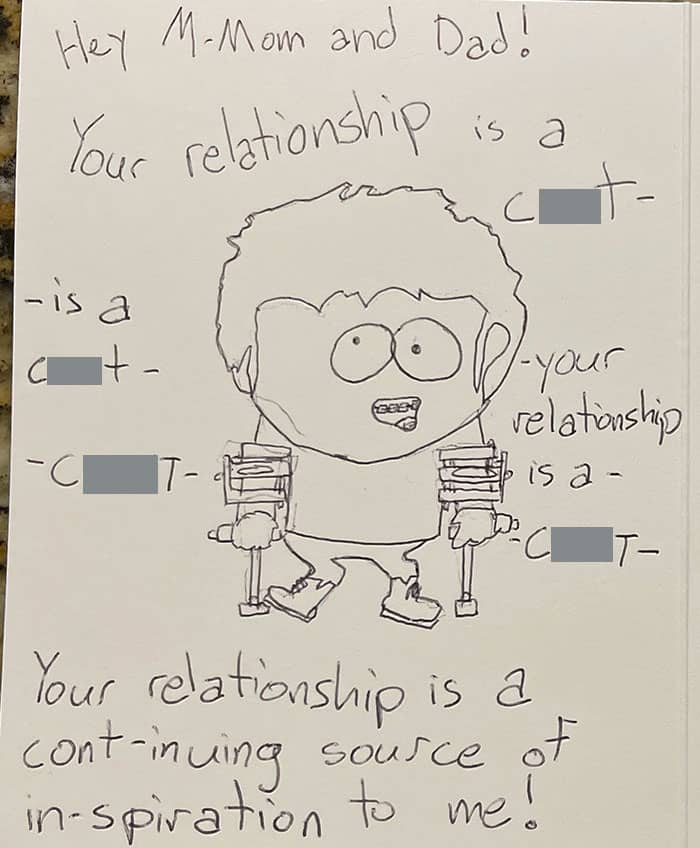 Hey M-Mom and Dad!
Your relationship is a
-is a
-your
relationship
is a -
Your relationship is a
cont-inuing source of
in-spiration to me!